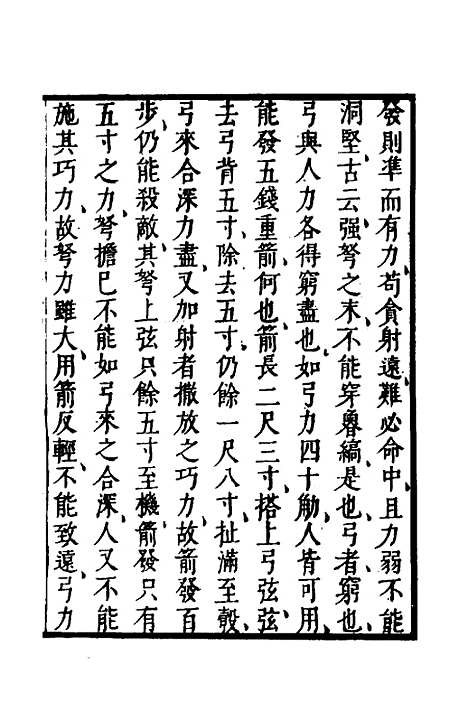 發則準而有力、苟貪射遠、難必命中、且力弱不能
洞堅、古云强弩之末、不能穿魯縞、是也、弓者窮也、
弓與人力各得窮盡也、如弓力四十觔、人皆可用、
能發五錢重箭、何也、箭長二尺三寸、搭上弓弦、弦
去弓背五寸、除去五寸、仍餘一尺八寸、扯滿至彀、
弓來合深力盡、又加射者撒放之巧力、故箭發百
步、仍能殺敵、其弩上弦只餘五寸至機、箭發只有
五寸之力、弩擔巳不能如弓來之合深、人又不能
施其巧力、故弩力雖大、用箭反輕、不能致遠、弓力